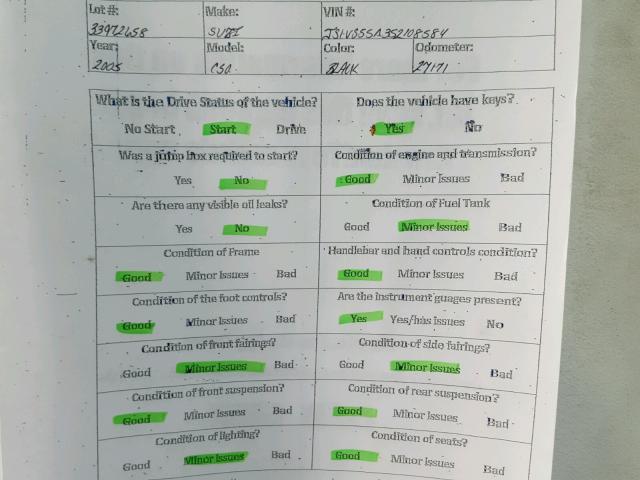 Lot #: Make: VIN #:
33972658 SUZI JS1VS55A352108584
Year: Model: Color: Odometer:
2005 BLACK 27171
What is the Drive Status of the vehicle? Does the vehicle have keys?
No Start Start Drive Yes No
Was a jump box required to start? Condition of engine and transmission?
Yes No Good Minor Issues Bad
Are there any visible oil leaks? Condition of Fuel Tank
Yes No Good Minor Issues Bad
Condition of Frame Handlebar and hand controls condition?
Good Minor Issues Bad Good Minor Issues Bad
Condition of the foot controls? Are the instrument guages present?
Good Minor Issues Bad Yes Yes/has issues No
Condition of front fairings? Condition of side fairings?
Good Minor Issues Bad Good Minor Issues Bad
Condition of front suspension? Condition of rear suspension?
Good Minor Issues Bad Good Minor Issues Bad
Condition of lighting? Condition of seats?
Good Minor Issues Bad Good Minor Issues Bad